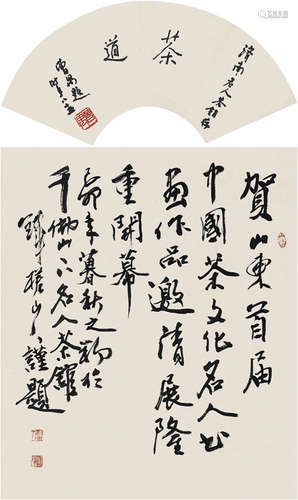 茶道
濟南名人茶館存
賀山東首届
中國茶文化名人书
画作品邀请展隆
重開幕
己卯年暮秋之初於
千佛山下名人茶館
山人謹題